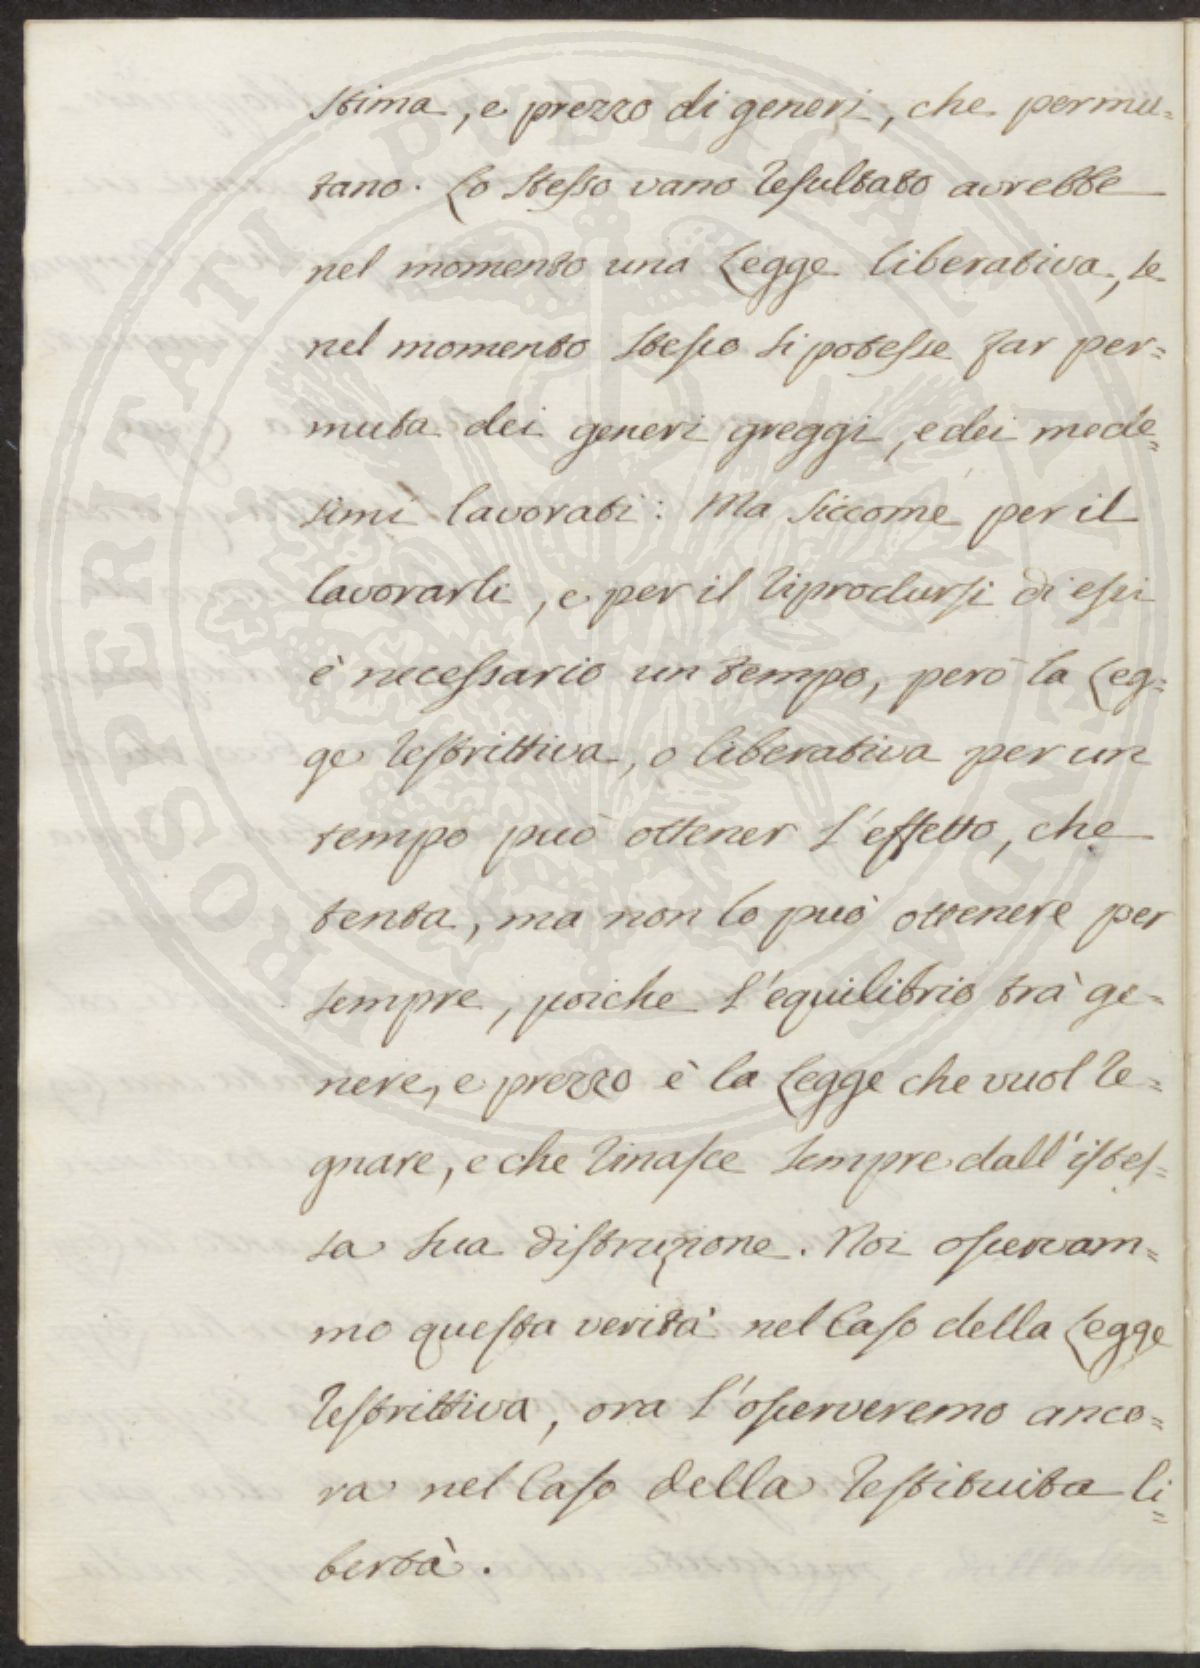 stima, e prezzo di generi, che permu=
tano. Lo stesso vano resultato avrebbe
nel momento una Legge liberativa, se
nel momento stesso si potesse far per=
muta dei generi greggi, e dei mede=
simi lavorati: Ma siccome per il
lavorarli, e per il riprodursi di essi
è necessario un tempo, però la Leg=
ge restrittiva, o liberativa per un
tempo può ottener l'effetto, che
tenta, ma non lo può ottenere per
sempre, poiche l'equilibrio trà ge=
nere, e prezzo è la Legge che vuol re=
gnare, e che rinasce sempre dall'istes=
sa sua distruzione. Noi osservam=
mo questa verità nel Caso della Legge
restrittiva, ora l'osserveremo anco=
ra nel Caso della restituita li=
bertà.
PROSPERITATI PUBLICAE AUGENDAE